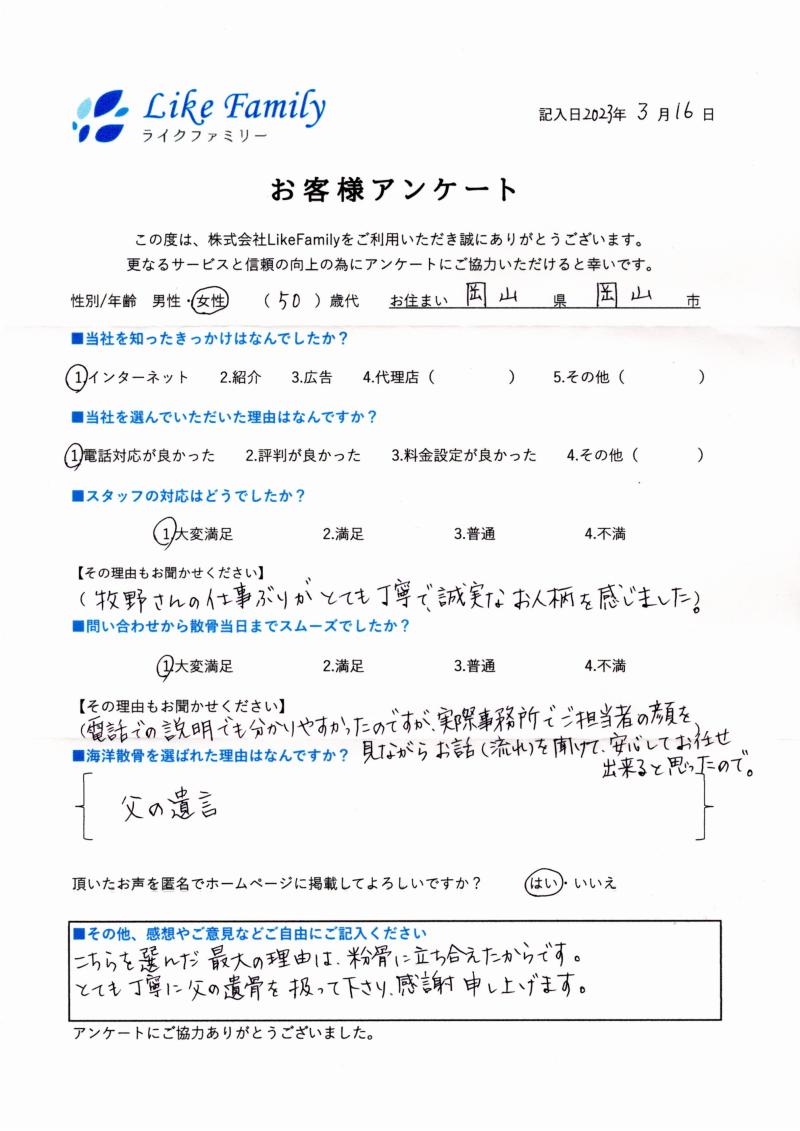 Like Family
ライクファミリー
記入日2023年 3 月 16 日
お客様アンケート
この度は、株式会社LikeFamilyをご利用いただき誠にありがとうございます。
更なるサービスと信頼の向上の為にアンケートにご協力いただけると幸いです。
性別/年齢 男性・女性 （ 50 ）歳代 お住まい 岡山 県 岡山 市
■当社を知ったきっかけはなんでしたか？
1.インターネット 2.紹介 3.広告 4.代理店（ ） 5.その他（ ）
■当社を選んでいただいた理由はなんですか？
1.電話対応が良かった 2.評判が良かった 3.料金設定が良かった 4.その他（ ）
■スタッフの対応はどうでしたか？
1.大変満足 2.満足 3.普通 4.不満
【その理由もお聞かせください】
（牧野さんの仕事ぶりがとても丁寧で、誠実なお人柄を感じました）。
■問い合わせから散骨当日までスムーズでしたか？
1.大変満足 2.満足 3.普通 4.不満
【その理由もお聞かせください】
（電話での説明でも分かりやすかったのですが、実際事務所でご担当者の顔を）
見ながらお話（流れ）を聞けて、安心してお任せ
出来ると思ったので。
■海洋散骨を選ばれた理由はなんですか？
父の遺言
頂いたお声を匿名でホームページに掲載してよろしいですか？ はい・いいえ
■その他、感想やご意見などご自由にご記入ください
こちらを選んだ最大の理由は、粉骨に立ち合えたからです。
とても丁寧に父の遺骨を扱って下さり、感謝申し上げます。
アンケートにご協力ありがとうございました。